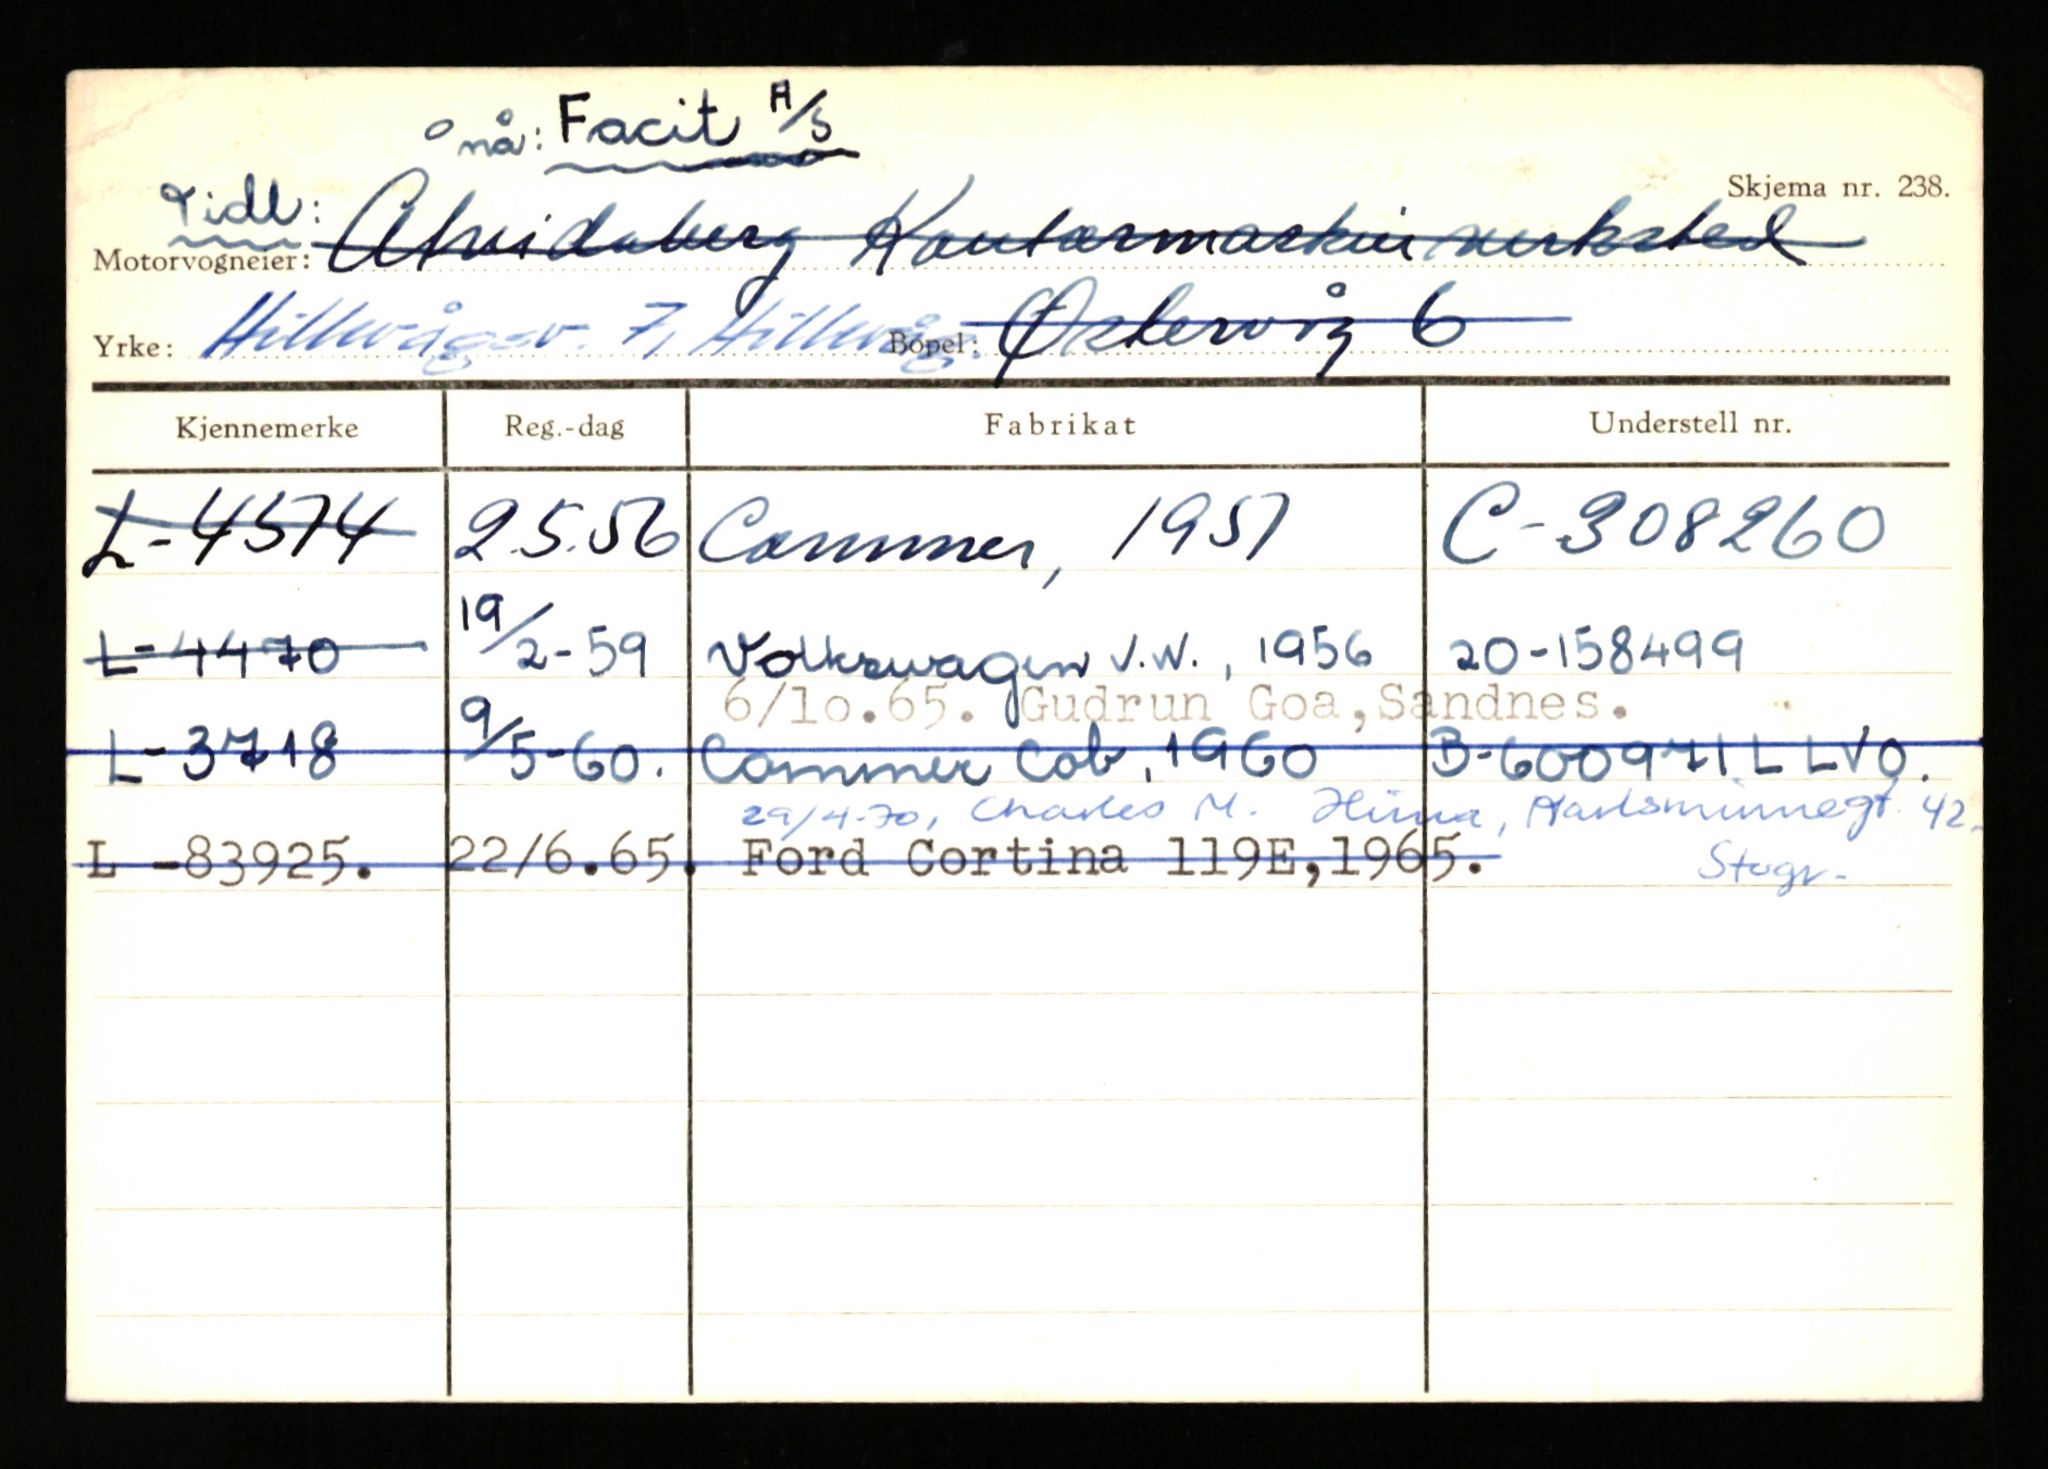 nå: Facit A/S
Skjema nr. 238.
Tidl:
Motorvogneier: Atvidaberg Kontormaskin verksted
Yrke: Hillevågsv. 7, Hillevåg. Bopel: Østervåg 6
Kjennemerke Reg.-dag Fabrikat Understell nr.
L-4574 2.5.56 Commer, 1951 C-308260
L-4470 19/2-59 Volkswagen V.W., 1956 20-158499
6/10.65. Gudrun Goa,Sandnes.
L-3718 9/5-60. Commer Cob, 1960 B-600971 L LVO.
29/4-70, Charles M. 42.
L -83925. 22/6.65. Ford Cortina 119E,1965.